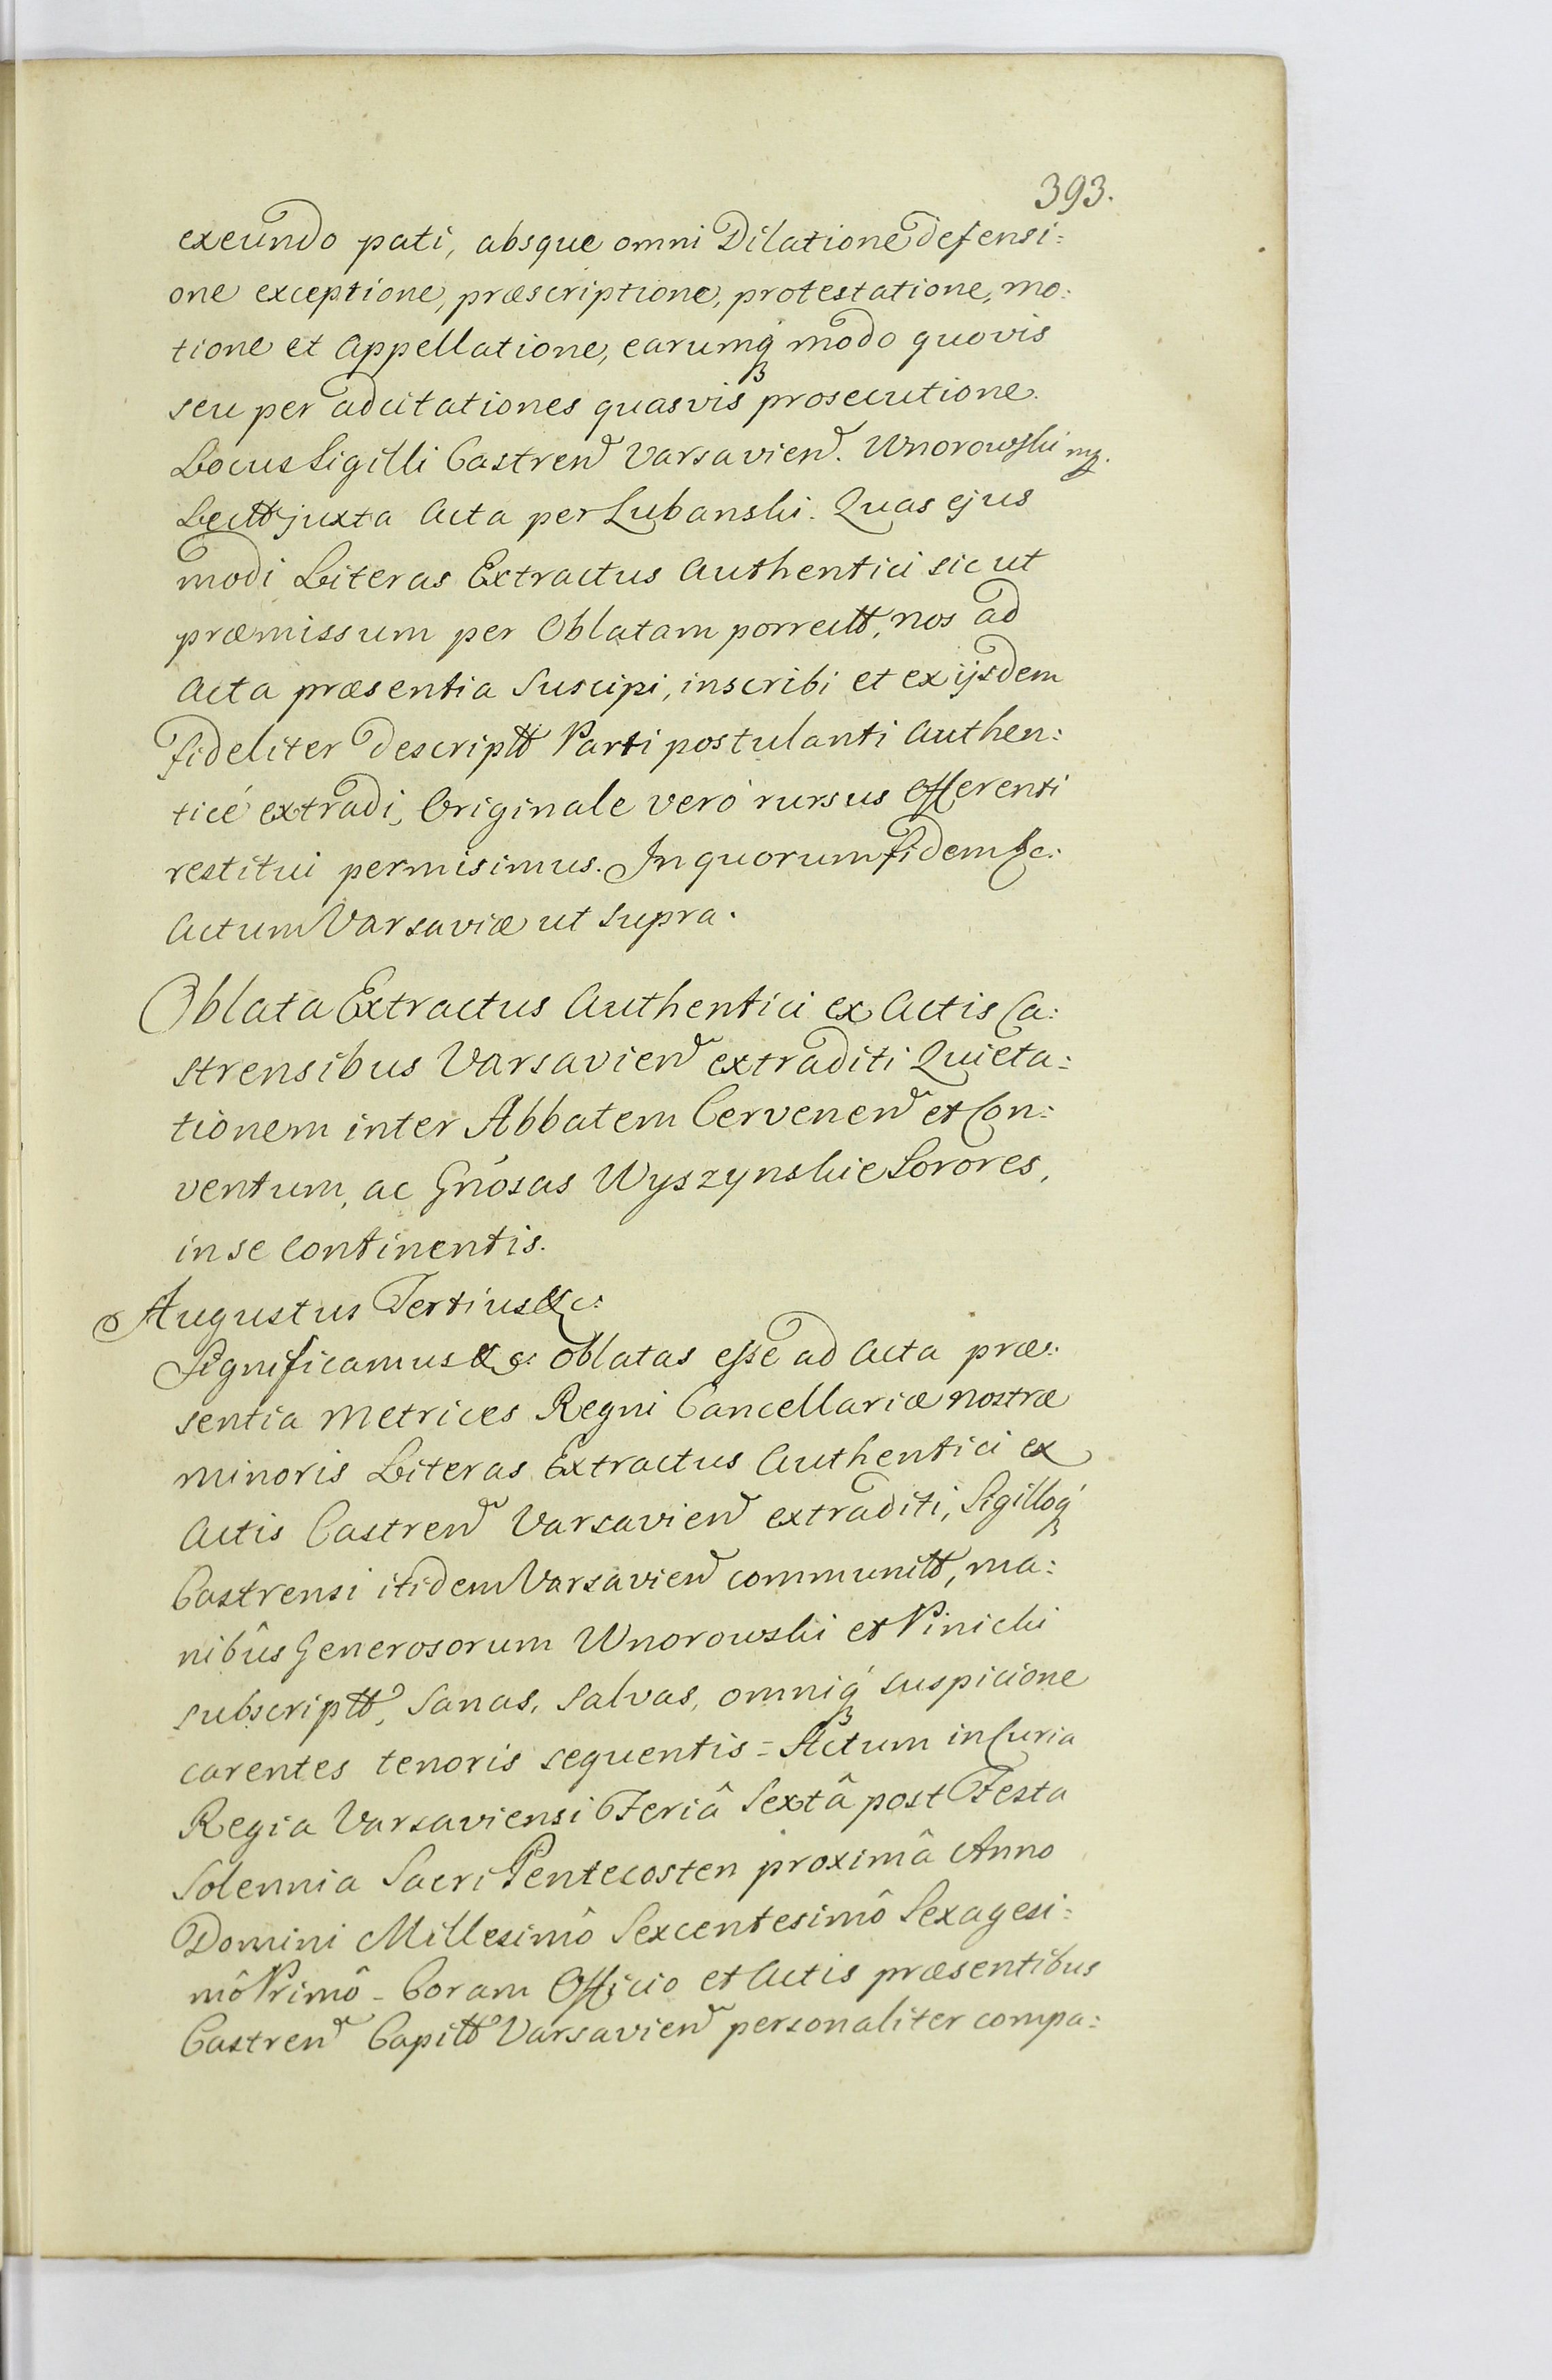 393.
exeundo pati, absque omni Dilatione defensi:
one exceptione, præscriptione, protestatione, mo:
tione et Appellatione, earumq́ꝫ modo quovis
seu per adcitationes quasvis prosecutione.
Locus Sigilli Castren̄ Varsavien̄. Wnorowski mp.
Lectt juxta Acta per Lubanski. Quas ejus
modi Literas Extractus Authentici sic ut
præmissum per Oblatam porrectt, nos ad
Acta præsentia Suscipi, inscribi et ex ijsdem
fideliter Descriptt Parti postulanti Authen:
ticé extradi, Originale veró rursus Offerenti
restitui permisimus. In quorum fidem &c:
Actum Varsaviæ ut supra.
Oblata Extractus Authentici ex Actis Ca:
strensibus Varsavien̄ extraditi Quieta:
tionem inter Abbatem Cervenen̄ et Con:
ventum, ac Gnósas Wyszynskie Sorores,
in se Continentis.
Augustus Tertius &c:
Significamus &c: Oblatas esse ad Acta præ:
sentia Metrices Regni Cancellariæ Nostræ
Minoris Literas Extractus Authentici ex
Actis Castren̄ Varsavien̄ extraditi, Sigilloq́ꝫ
Castrensi itidem Varsavien̄ communitt, ma:
nibûs Generosorum Wnorowski et Pinicki
subscriptt, Sanas, Salvas, omniq́ꝫ suspicione
carentes tenoris sequentis = Actum in Curia
Regia Varsaviensi Feriâ Sextâ post Festa
Solennia Sacri Pentecosten proximâ Anno
Domini Millesimô Sexcentesimô Sexagesi:
mô Primô - Coram Officio et Actis præsentibus
Castren̄ Capitt Varsavien̄ personaliter compa: